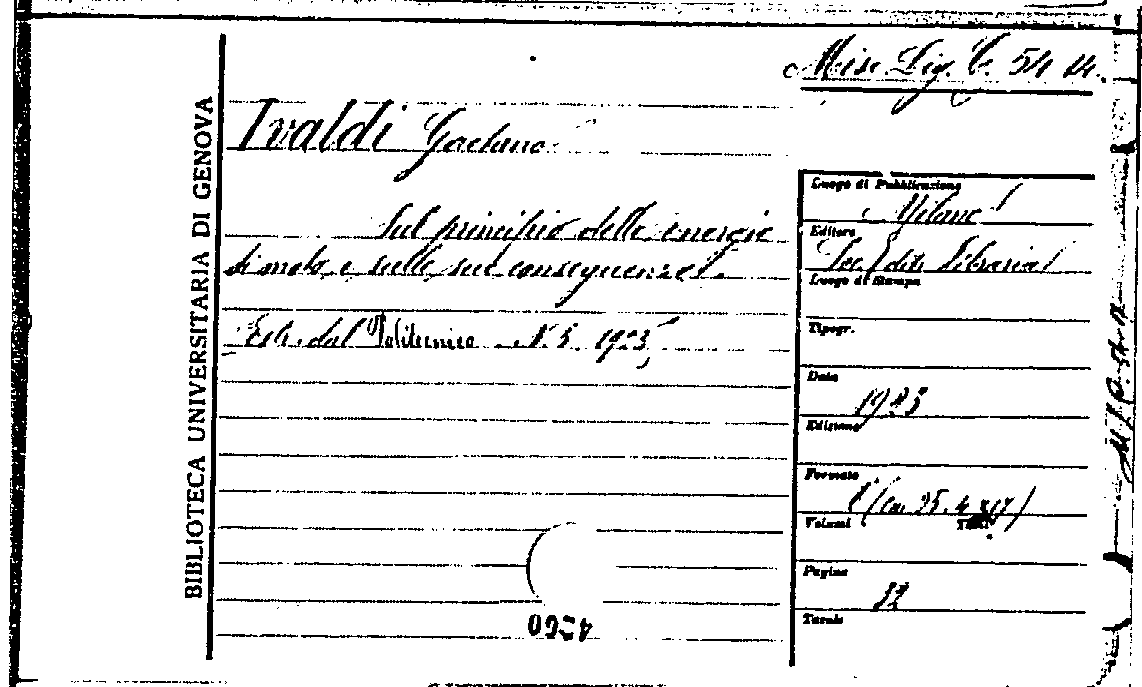 Misc. Lig. C. 54 14.
BIBLIOTECA UNIVERSITARIA DI GENOVA
Ivaldi Gaetano
Sul principio delle energie
di moto e sulle sue conseguenze.
Estr. dal Politecnico N. 5 1923
Luogo di Pubblicazione
Milano
Editore
Soc. Edit. Libraria
Luogo di Stampa
Tipogr.
Data
1923
Edizione
Formato
8° (cm. 25.4 x 17)
Volumi Tomi
Pagine
12
Tavole